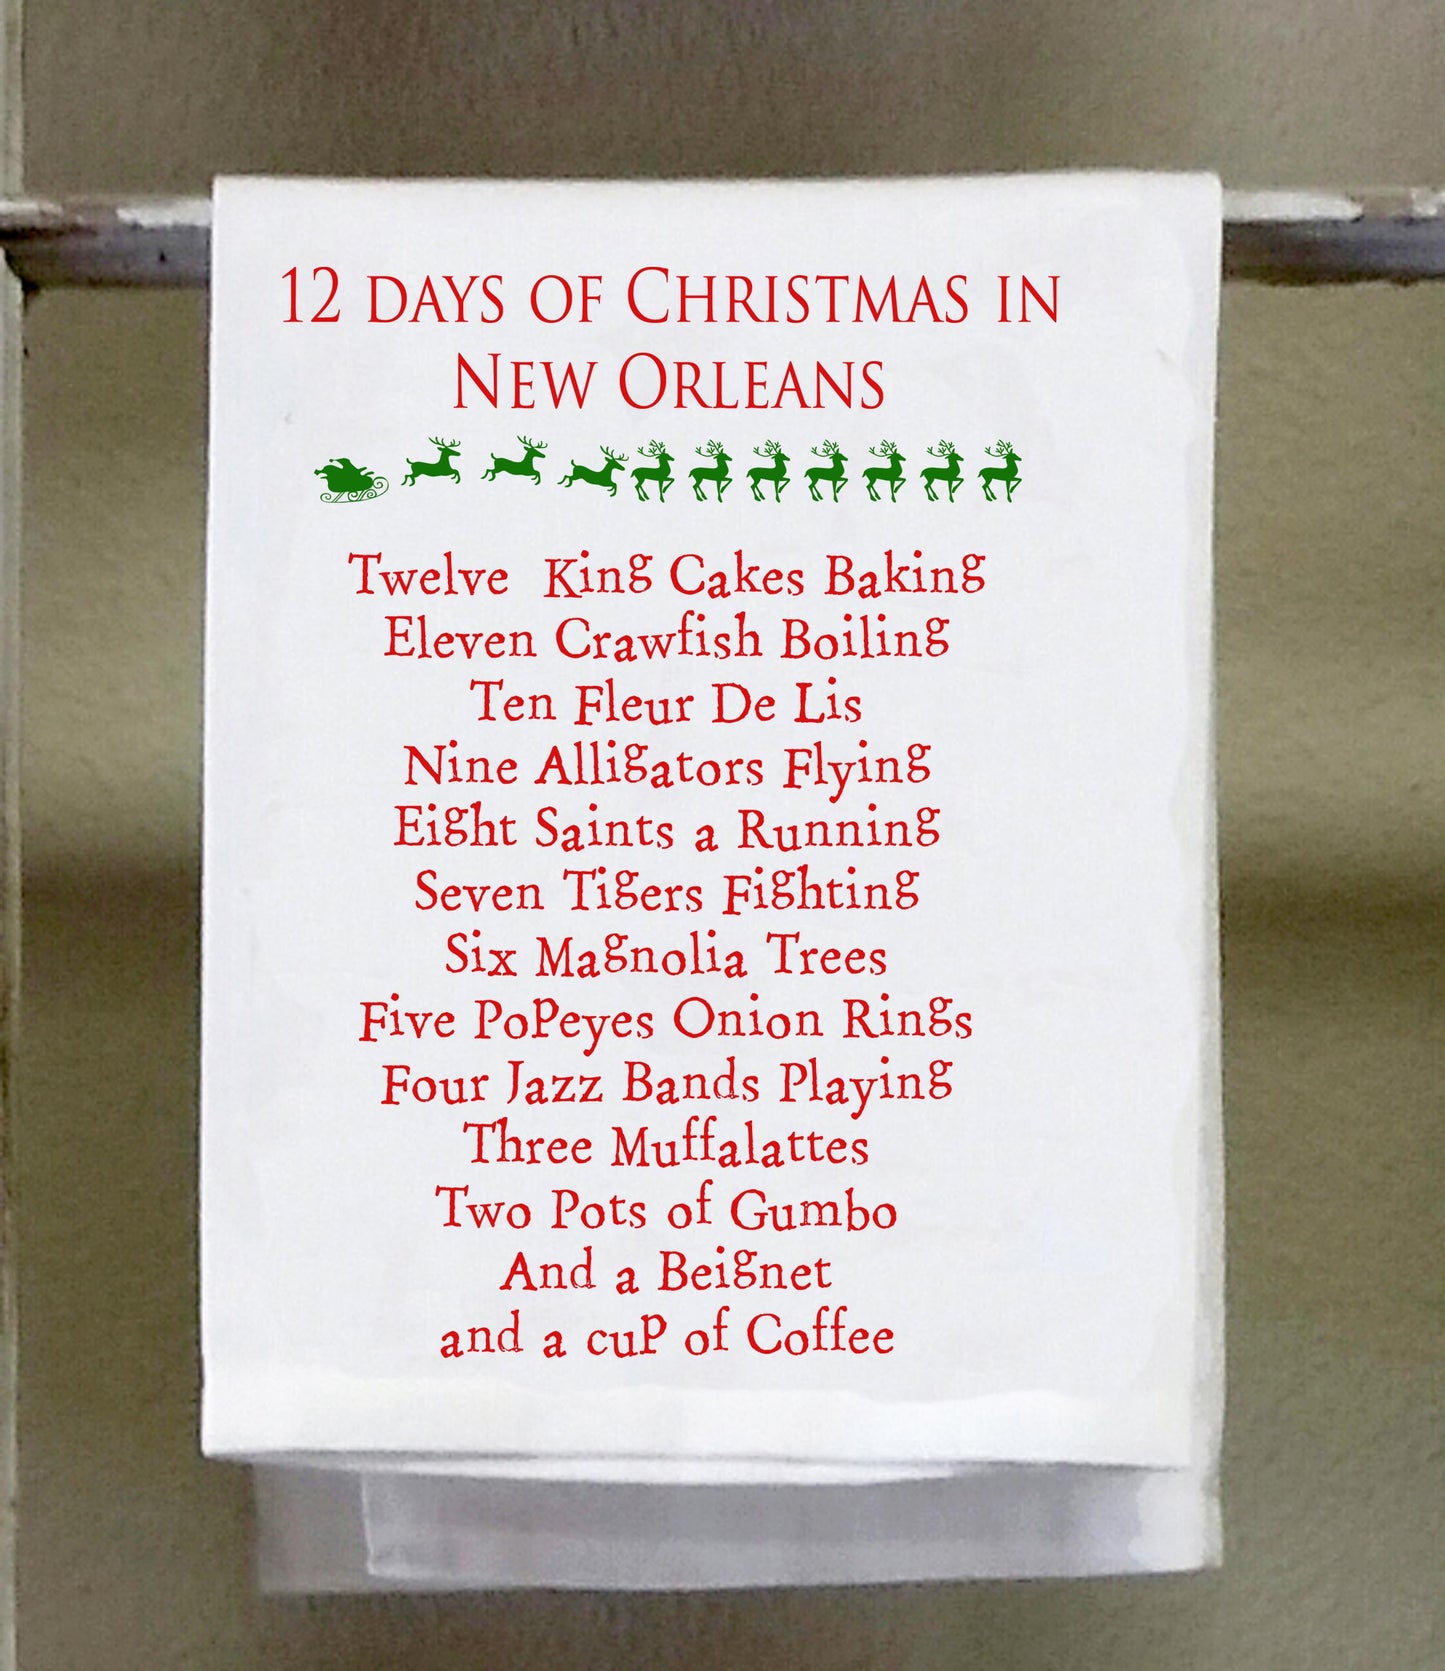 12 DAYS OF CHRISTMAS IN
NEW ORLEANS
Twelve King Cakes Baking
Eleven Crawfish Boiling
Ten Fleur De Lis
Nine Alligators Flying
Eight Saints a Running
Seven Tigers Fighting
Six Magnolia Trees
Five Popeyes Onion Rings
Four Jazz Bands Playing
Three Muffalattes
Two Pots of Gumbo
And a Beignet
and a cup of Coffee